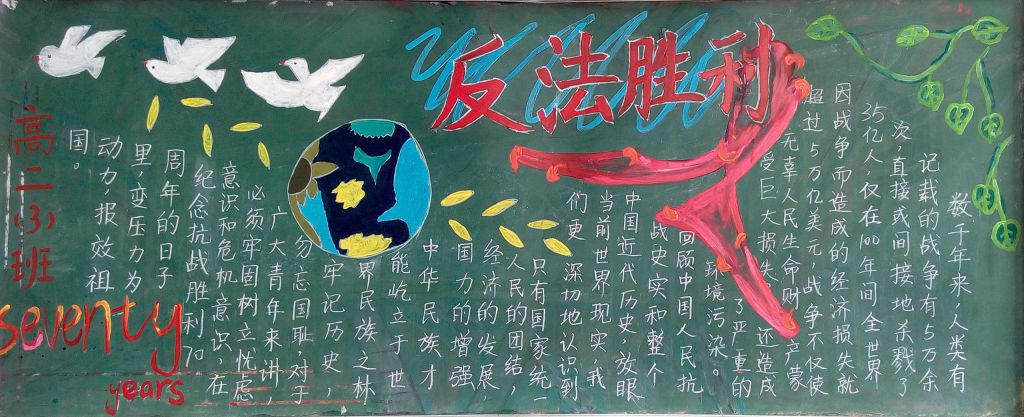 反法胜利
数千年来,人类有
记载的战争有5万余
次,直接或间接地杀戮了
35亿人,仅在100年间全世界
因战争而造成的经济损失就
超过5万亿美元。战争不仅使
无辜人民生命财产蒙
受巨大损失,还造成
了严重的
环境污染。
回顾中国人民抗
战史实和整个
中国近代历史,放眼
当前世界现实,我
们更深切地认识到
只有国家统一
人民的团结,
经济的发展,
国力的增强
中华民族才
能屹立于世
界民族之林
牢记历史,
勿忘国耻,对于
广大青年来讲,
必须牢固树立忧虑
意识和危机意识,在
纪念抗战胜利70
周年的日子
里,变压力为
动力,报效祖
国。
高二(3)班
seventy
years